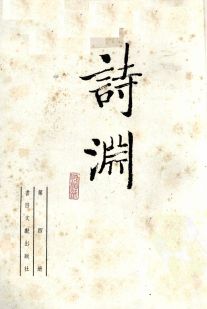 詩淵
第四册
書目文献出版社